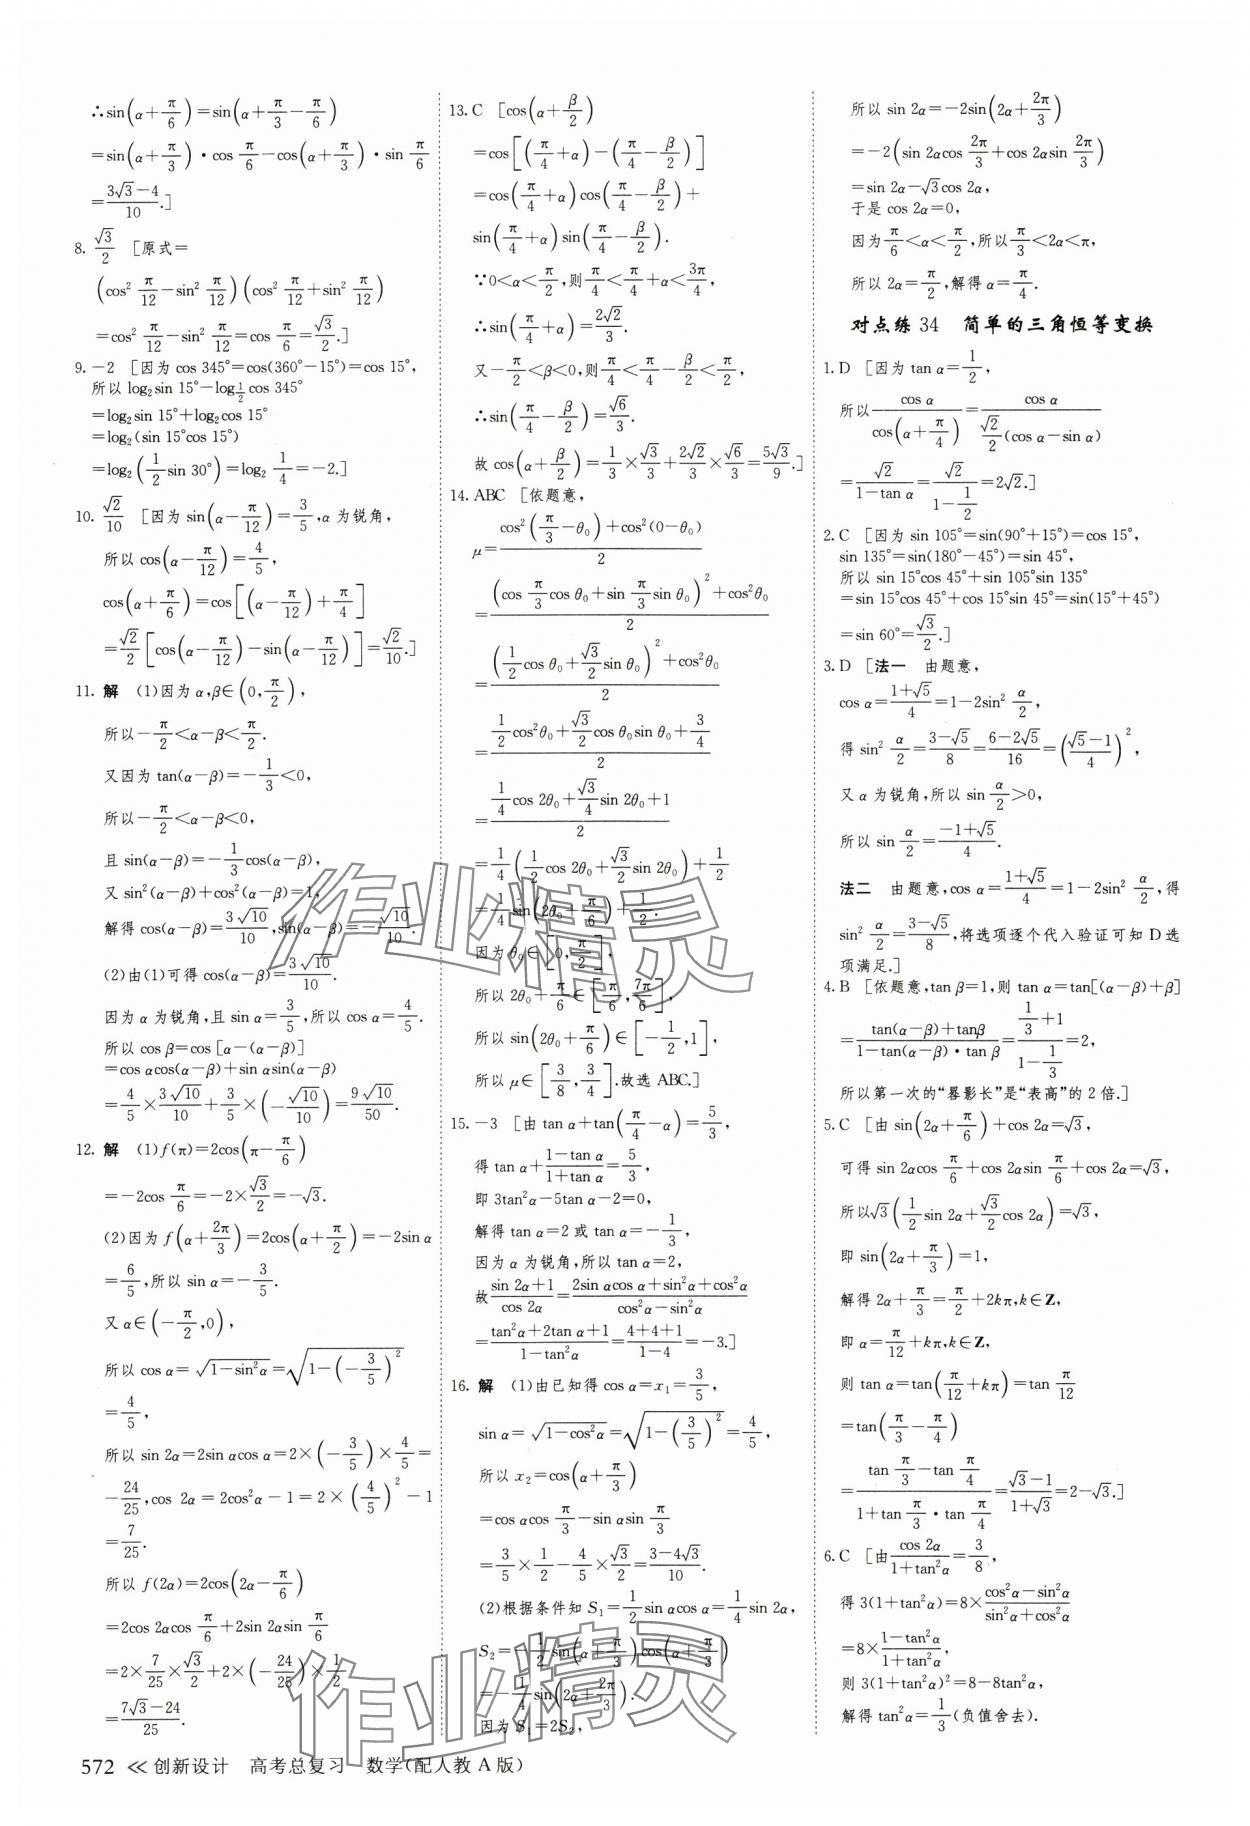 ∴sin(α+π/6)=sin(α+π/3−π/6)
=sin(α+π/3)·cos π/6−cos(α+π/3)·sin π/6
=(3√3−4)/10.]
8. √3/2 [原式=
(cos² π/12−sin² π/12)(cos² π/12+sin² π/12)
=cos² π/12−sin² π/12=cos π/6=√3/2.]
9. −2 [因为 cos 345°=cos(360°−15°)=cos 15°,
所以 log₂sin 15°−log_{1/2}cos 345°
=log₂sin 15°+log₂cos 15°
=log₂(sin 15°cos 15°)
=log₂(1/2 sin 30°)=log₂ 1/4=−2.]
10. √2/10 [因为 sin(α−π/12)=3/5,α 为锐角,
所以 cos(α−π/12)=4/5,
cos(α+π/6)=cos[(α−π/12)+π/4]
=√2/2[cos(α−π/12)−sin(α−π/12)]=√2/10.]
11. 解 (1)因为 α,β∈(0,π/2),
所以−π/2<α−β<π/2.
又因为 tan(α−β)=−1/3<0,
所以−π/2<α−β<0,
且 sin(α−β)=−1/3cos(α−β),
又 sin²(α−β)+cos²(α−β)=1,
解得 cos(α−β)=3√10/10,sin(α−β)=−√10/10.
(2)由(1)可得 cos(α−β)=3√10/10.
因为 α 为锐角,且 sin α=3/5,所以 cos α=4/5.
所以 cos β=cos [α−(α−β)]
=cos αcos(α−β)+sin αsin(α−β)
=4/5×3√10/10+3/5×(−√10/10)=9√10/50.
12. 解 (1)f(π)=2cos(π−π/6)
=−2cos π/6=−2×√3/2=−√3.
(2)因为 f(α+2π/3)=2cos(α+π/2)=−2sin α
=6/5,所以 sin α=−3/5.
又 α∈(−π/2,0),
所以 cos α=√(1−sin²α)=√(1−(−3/5)²)
=4/5,
所以 sin 2α=2sin αcos α=2×(−3/5)×4/5=
−24/25,cos 2α=2cos²α−1=2×(4/5)²−1
=7/25.
所以 f(2α)=2cos(2α−π/6)
=2cos 2αcos π/6+2sin 2αsin π/6
=2×7/25×√3/2+2×(−24/25)×1/2
=(7√3−24)/25.
13. C [cos(α+β/2)
=cos[(π/4+α)−(π/4−β/2)]
=cos(π/4+α)cos(π/4−β/2)+
sin(π/4+α)sin(π/4−β/2).
∵0<α<π/2,则π/4<π/4+α<3π/4,
∴sin(π/4+α)=2√2/3.
又−π/2<β<0,则π/4<π/4−β/2<π/2,
∴sin(π/4−β/2)=√6/3.
故 cos(α+β/2)=1/3×√3/3+2√2/3×√6/3=5√3/9.]
14. ABC [依题意,
μ=(cos²(π/3−θ₀)+cos²(0−θ₀))/2
=((cos π/3cos θ₀+sin π/3sin θ₀)²+cos²θ₀)/2
=((1/2cos θ₀+√3/2sin θ₀)²+cos²θ₀)/2
=(1/2cos²θ₀+√3/2cos θ₀sin θ₀+3/4)/2
=(1/4cos 2θ₀+√3/4sin 2θ₀+1)/2
=1/4(1/2cos 2θ₀+√3/2sin 2θ₀)+1/2
=1/4sin(2θ₀+π/6)+1/2.
因为 θ₀∈[0,π/2],
所以 2θ₀+π/6∈[π/6,7π/6],
所以 sin(2θ₀+π/6)∈[−1/2,1],
所以 μ∈[3/8,3/4].故选 ABC.]
15. −3 [由 tan α+tan(π/4−α)=5/3,
得 tan α+(1−tan α)/(1+tan α)=5/3,
即 3tan²α−5tan α−2=0,
解得 tan α=2 或 tan α=−1/3,
因为 α 为锐角,所以 tan α=2,
故(sin 2α+1)/cos 2α=(2sin αcos α+sin²α+cos²α)/(cos²α−sin²α)
=(tan²α+2tan α+1)/(1−tan²α)=(4+4+1)/(1−4)=−3.]
16. 解 (1)由已知得 cos α=x₁=3/5,
sin α=√(1−cos²α)=√(1−(3/5)²)=4/5,
所以 x₂=cos(α+π/3)
=cos αcos π/3−sin αsin π/3
=3/5×1/2−4/5×√3/2=(3−4√3)/10.
(2)根据条件知 S₁=1/2sin αcos α=1/4sin 2α,
S₂=−1/2sin(α+π/3)cos(α+π/3)
=−1/4sin(2α+2π/3).
因为 S₁=2S₂,
所以 sin 2α=−2sin(2α+2π/3)
=−2(sin 2αcos 2π/3+cos 2αsin 2π/3)
=sin 2α−√3cos 2α,
于是 cos 2α=0,
因为π/6<α<π/2,所以π/3<2α<π,
所以 2α=π/2,解得 α=π/4.
对点练 34 简单的三角恒等变换
1. D [因为 tan α=1/2,
所以cos α/cos(α+π/4)=cos α/(√2/2(cos α−sin α))
=√2/(1−tan α)=√2/(1−1/2)=2√2.]
2. C [因为 sin 105°=sin(90°+15°)=cos 15°,
sin 135°=sin(180°−45°)=sin 45°,
所以 sin 15°cos 45°+sin 105°sin 135°
=sin 15°cos 45°+cos 15°sin 45°=sin(15°+45°)
=sin 60°=√3/2.]
3. D [法一 由题意,
cos α=(1+√5)/4=1−2sin² α/2,
得 sin² α/2=(3−√5)/8=(6−2√5)/16=((√5−1)/4)²,
又 α 为锐角,所以 sin α/2>0,
所以 sin α/2=(−1+√5)/4.
法二 由题意,cos α=(1+√5)/4=1−2sin² α/2,得
sin² α/2=(3−√5)/8,将选项逐个代入验证可知 D 选
项满足.]
4. B [依题意,tan β=1,则 tan α=tan[(α−β)+β]
=(tan(α−β)+tanβ)/(1−tan(α−β)·tan β)=(1/3+1)/(1−1/3)=2,
所以第一次的“晷影长”是“表高”的 2 倍.]
5. C [由 sin(2α+π/6)+cos 2α=√3,
可得 sin 2αcos π/6+cos 2αsin π/6+cos 2α=√3,
所以√3(1/2sin 2α+√3/2cos 2α)=√3,
即 sin(2α+π/3)=1,
解得 2α+π/3=π/2+2kπ,k∈Z,
即 α=π/12+kπ,k∈Z,
则 tan α=tan(π/12+kπ)=tan π/12
=tan(π/3−π/4)
=(tan π/3−tan π/4)/(1+tan π/3·tan π/4)=(√3−1)/(1+√3)=2−√3.]
6. C [由cos 2α/(1+tan²α)=3/8,
得 3(1+tan²α)=8×(cos²α−sin²α)/(sin²α+cos²α)
=8×(1−tan²α)/(1+tan²α)
则 3(1+tan²α)²=8−8tan²α,
解得 tan²α=1/3(负值舍去).
572 ≪ 创新设计 高考总复习 数学(配人教 A 版)
作业精灵
作业精灵